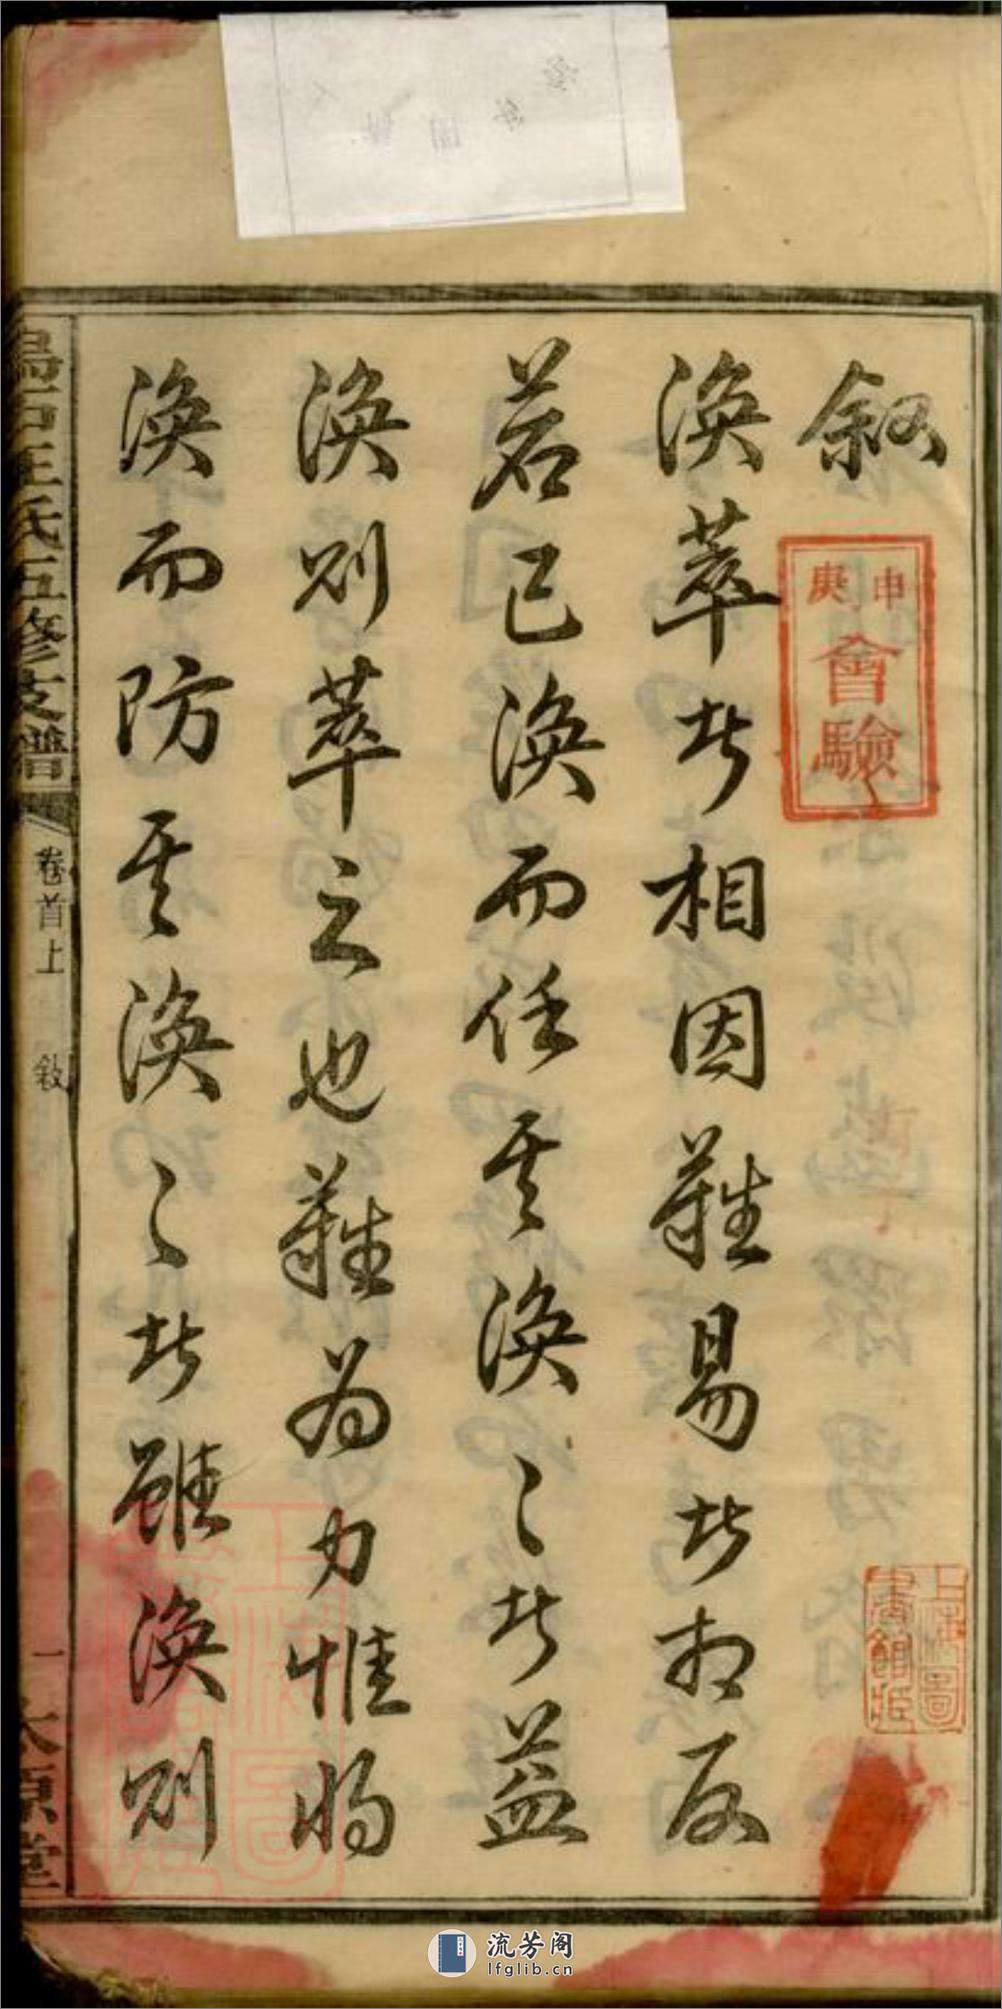 敘
渙萃者相因難易者相反
若已渙而任其渙渙者益
渙則萃之也難為力惟將
渙而防其渙渙者雖渙則
庚申
會驗
上海圖書館藏
烏石王氏五修支譜
卷首上
敘
一
太原堂
流芳阁
lfglib.cn